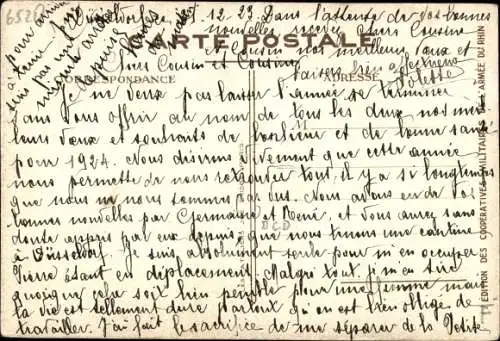 Düsseldorf, 12-23
Dans l'attente de vos bonnes
nouvelles recevez chers Cousine
et Cousin nos meilleurs vœux et
CARTE POSTALE
Chers Cousin et Cousine
CORRESPONDANCE
ADRESSE
Je ne veux pas laisser l'année se terminer
sans vous offrir au nom de tous les deux nos meil
leurs vœux et souhaits de bonheur et de bonne santé
pour 1924. Nous désirons vivement que cette année
nous permette de nous retrouver tous, il y a si longtemps
que nous ne nous sommes pas vus. Nous avons eu de vos
bonnes nouvelles par Germaine et René, et vous aurez sans
doute appris par eux depuis, que nous tenons une cantine
à Düsseldorf. Je suis absolument seule pour m'en occuper
Pierre étant en déplacement. Malgré tout, j'm'en tire
quoique cela soit bien pénible pour une femme mais
la vie est tellement dure partout qu'on est bien obligé de
travailler. J'ai fait le sacrifice de me séparer de la Petite
EDITION DES COOPERATIVES MILITAIRES DE L'ARMÉE DU RHIN